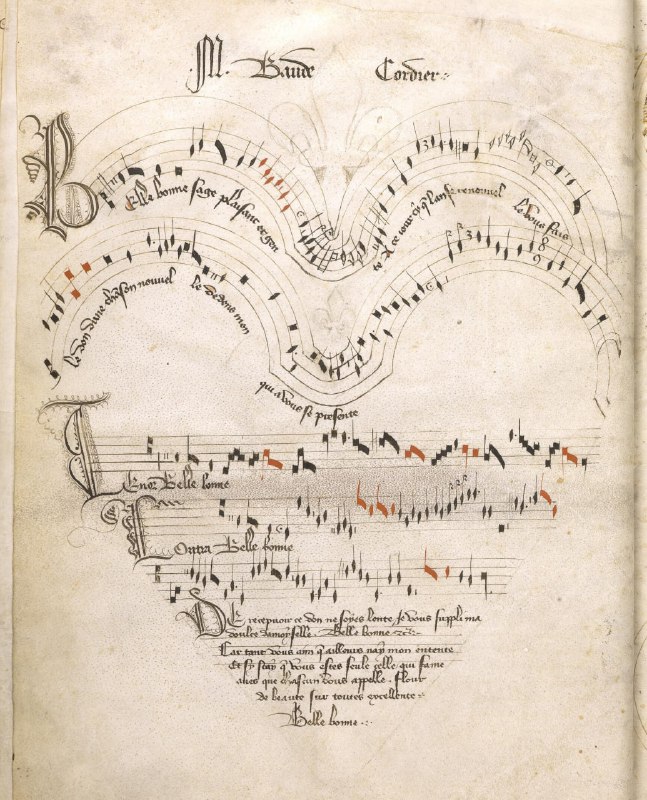 M. Baude Cordier
Belle bonne sage plaisant et gen
te A ce jour cy q lan se renouvel
Vo le don dune chāson nouvel le Dedens mon
qui a vous se presente
Tenor Belle bonne
Contra Belle bonne
De recepuoir ce don ne soyes lente Je vous suppli ma
doulce damoyselle. Belle bonne
Car tant vous aim q aillours nay mon entente
Et sy scay q vous estes seule celle qui fame
aues que chascun vous appelle. Flour
de beaute sur toutes excellente
Belle bonne.